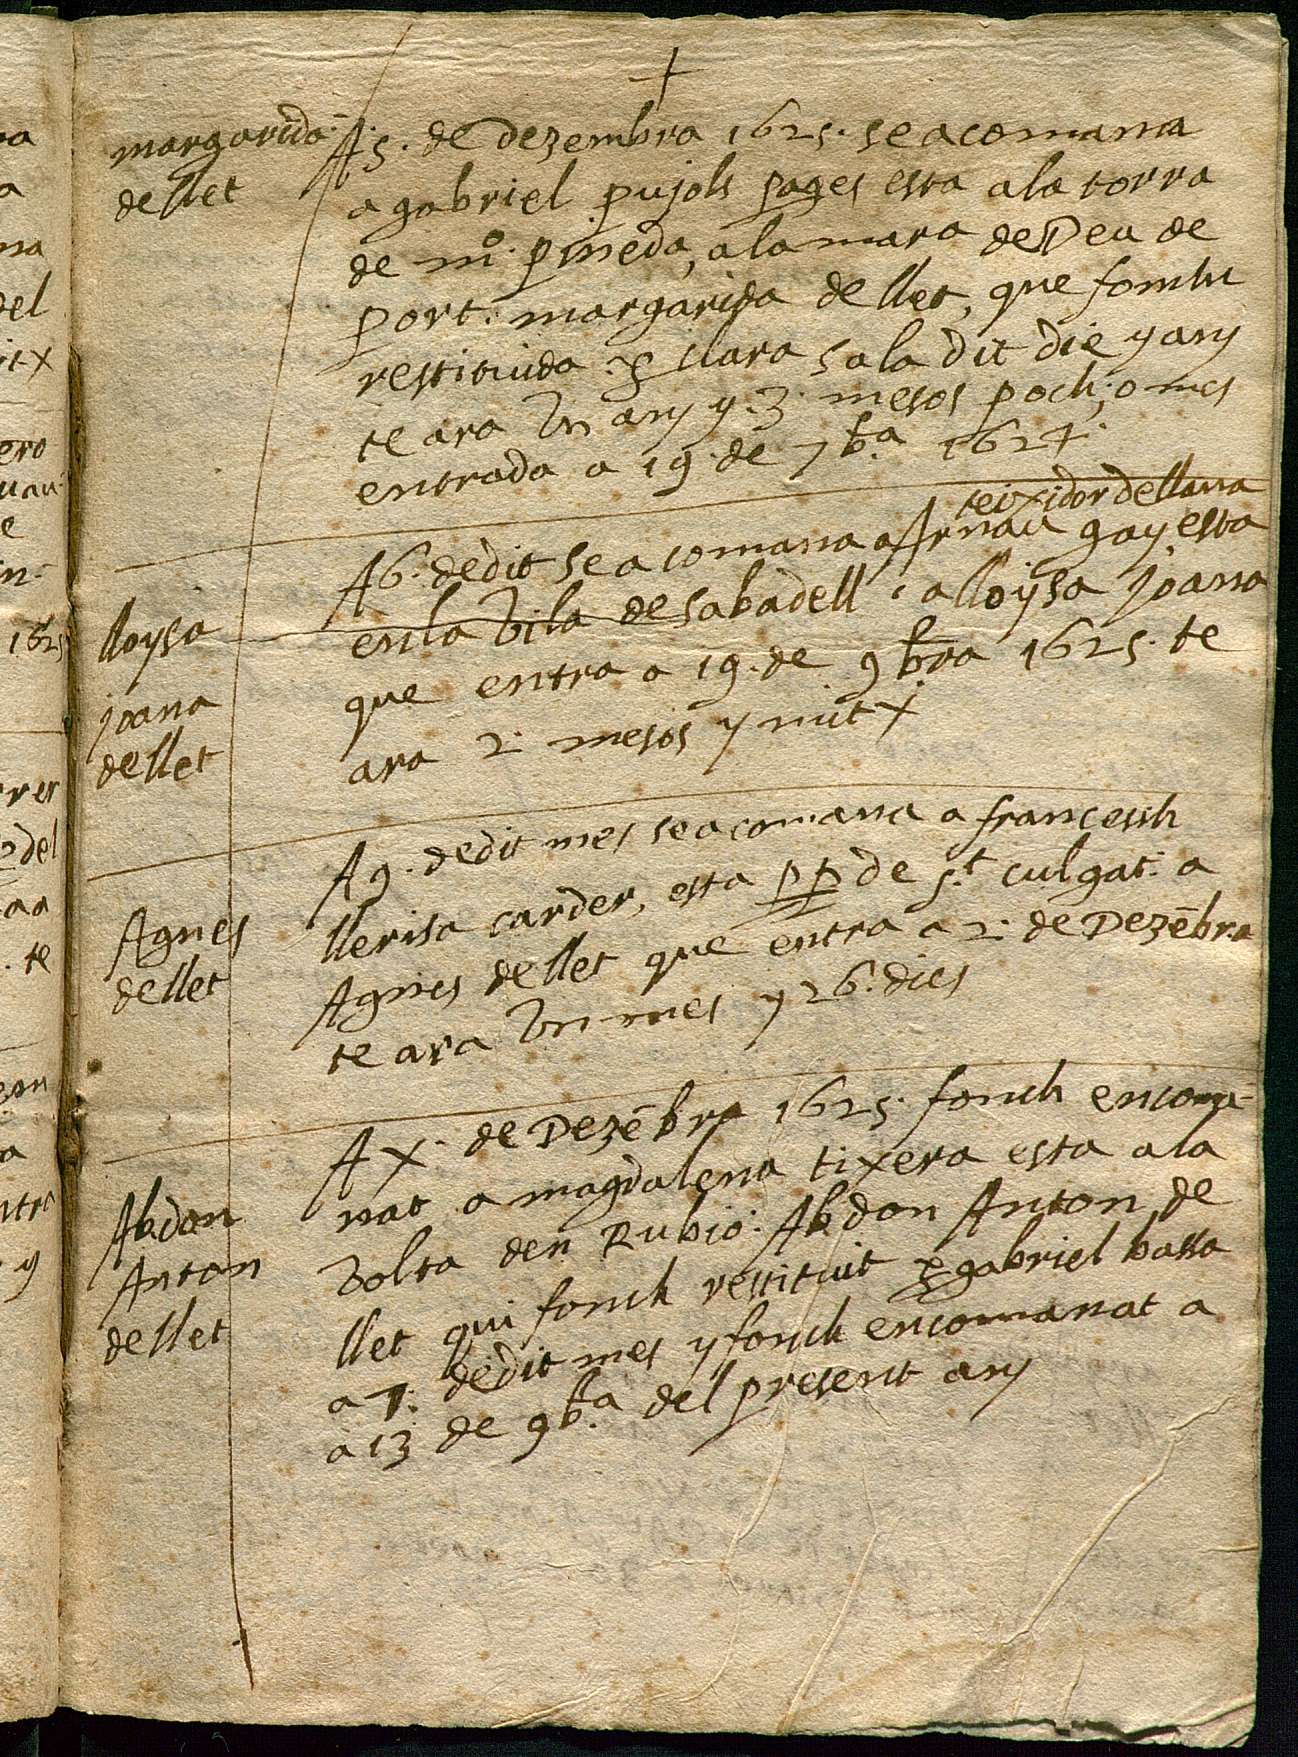 +
margarida
de llet
A 5. de Dezembra 1625. se acomana
a gabriel pujols pages esta a la torra
de m.º pineda, a la mara de Deu de
port. margarida de llet, que fonch
restituida. p clara sala dit die y any
te ara Un any y .3. mesos poch, o mes
entrada a 19. de 7b.ª 1624.
lloysa
joana
de llet
teixidor de llana
A 6. de dit se acomana a Arnau gay esta
en la Vila de sabadell a lloysa Joana
que entra a 19. de 9bra 1625. te
ara 2. mesos y mitx
Agnes
de llet
A 9. de dit mes se acomana a francessh
llerisa carder, esta pp de s.t culgat. a
Agnes de llet que entra a 2. de Dezēbra
te ara Un mes y 26. dies
Abdon
Anton
de llet
A X. de Dezēbra 1625. fonch encoma-
nat a magdalena tixera esta a la
Volta den Rubio. Abdon Anton, de
llet qui fonch restituit p gabriel bassa
a 7. de dit mes y fonch encomanat a
a 13 de 9b.ª del present any
1625
del
te